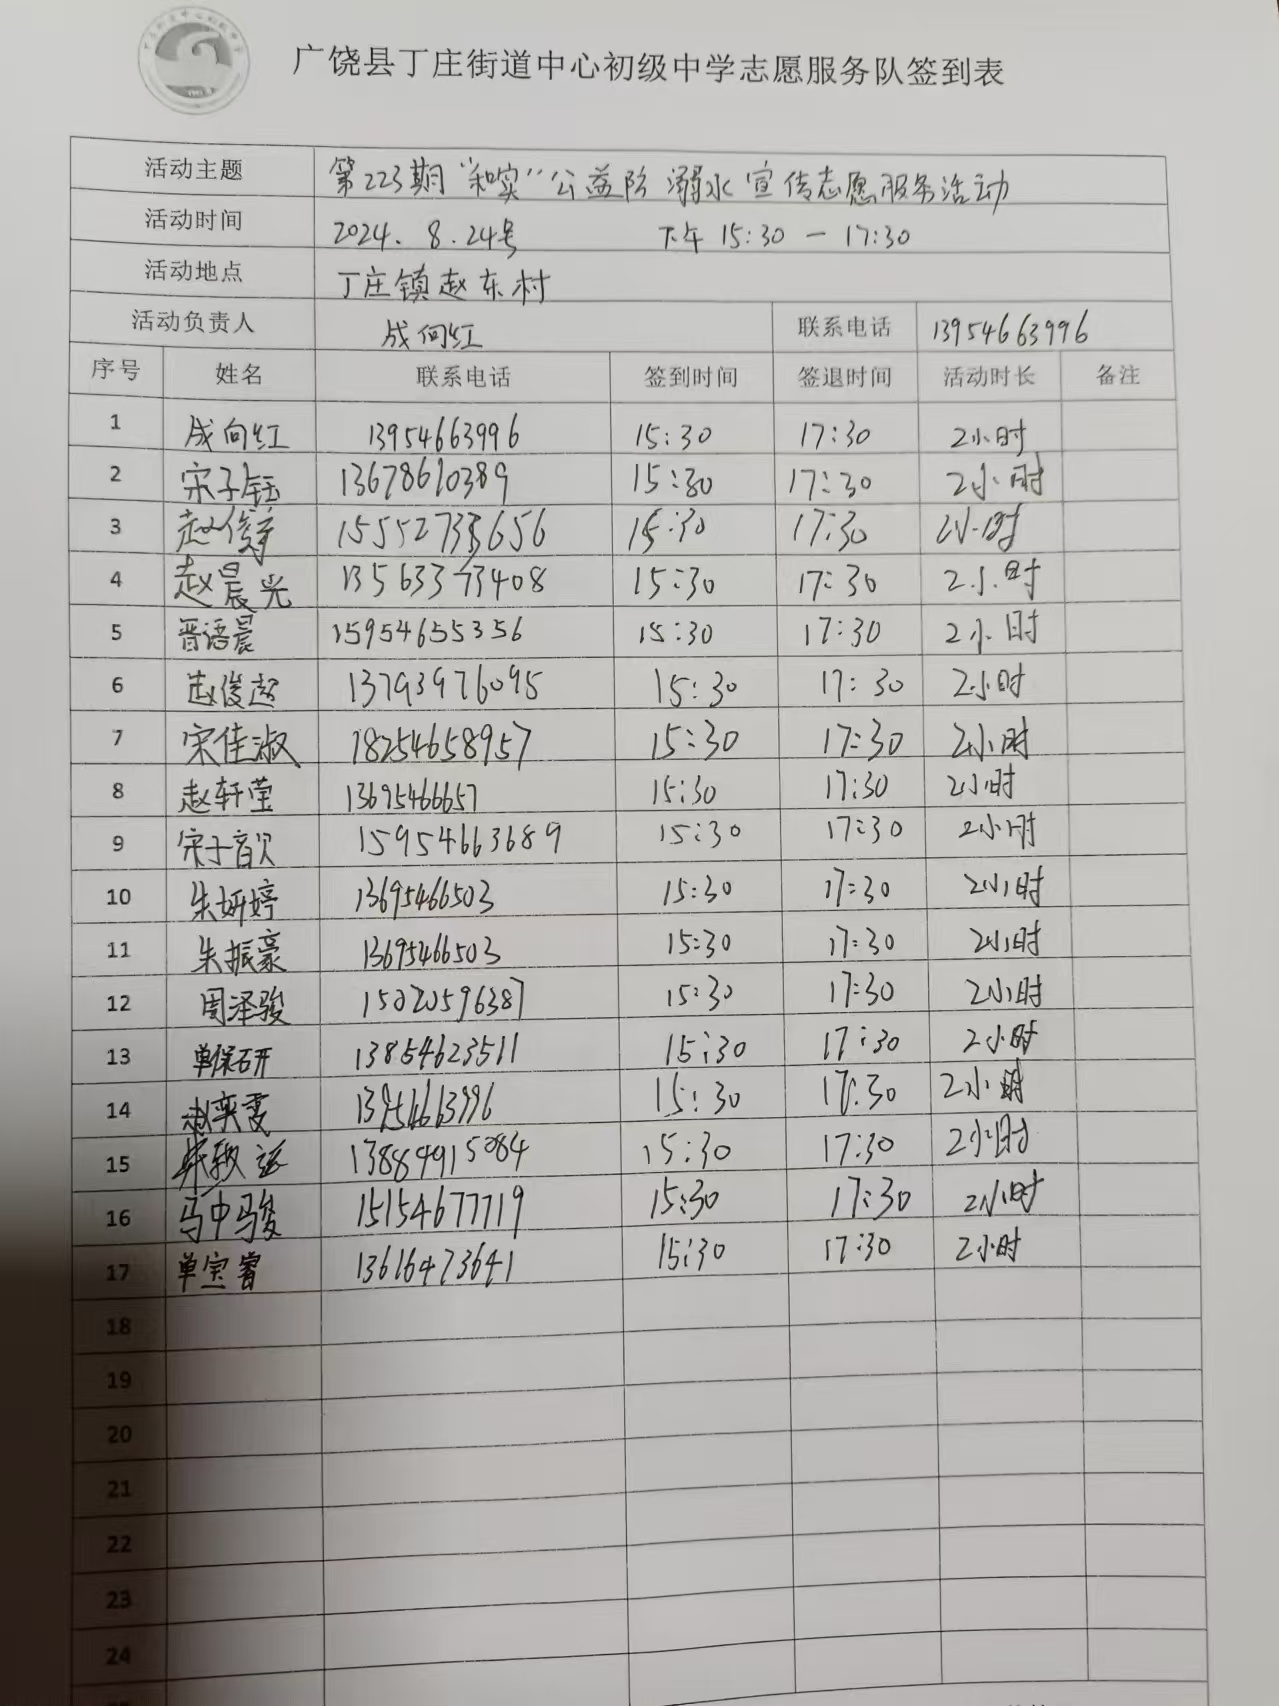 广饶县丁庄街道中心初级中学志愿服务队签到表
活动主题 第223期“和实”公益防溺水宣传志愿服务活动
活动时间 2024.8.24号 下午15:30—17:30
活动地点 丁庄镇赵东村
活动负责人 成向红 联系电话 13954663996
序号 姓名 联系电话 签到时间 签退时间 活动时长 备注
1 成向红 13954663996 15:30 17:30 2小时
2 宋子钰 13678610389 15:30 17:30 2小时
3 赵俊 15:30 17:30 2小时
4 赵晨光 15:30 17:30 2小时
5 晋语晨 15954655356 15:30 17:30 2小时
6 赵俊超 13793976095 15:30 17:30 2小时
7 宋佳淑 18254658957 15:30 17:30 2小时
8 赵轩莹 13695466657 15:30 17:30 2小时
9 宋子歆 15954663689 15:30 17:30 2小时
10 朱妍婷 13695466503 15:30 17:30 2小时
11 朱振豪 13695466503 15:30 17:30 2小时
12 周泽骏 15:30 17:30 2小时
13 单保研 13854623511 15:30 17:30 2小时
14 赵奕雯 13954663996 15:30 17:30 2小时
15 15:30 17:30 2小时
16 马中骏 15154677719 15:30 17:30 2小时
17 单宝睿 13616473641 15:30 17:30 2小时
18
19
20
21
22
23
24